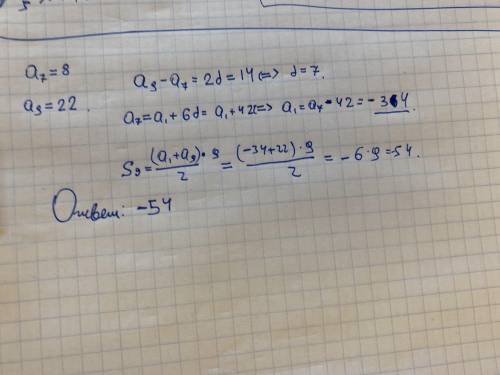 a₇ = 8
a₉ = 22.
a₉ - a₇ = 2d = 14 <=> d = 7.
a₇ = a₁ + 6d = a₁ + 42 <=> a₁ = a₇ - 42 = -34.
S₉ = (a₁ + a₉) · 9 / 2 = (-34 + 22) · 9 / 2 = -6 · 9 = -54.
Ответ: -54